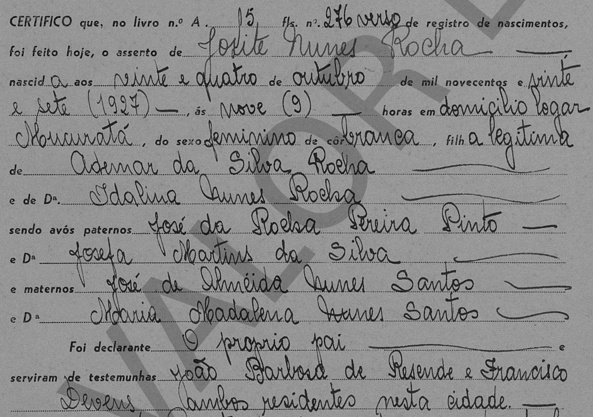 CERTIFICO que, no livro n.º A. 15 fls. nº. 276 verso de registro de nascimentos,
foi feito hoje, o assento de Josite Nunes Rocha
nascida aos vinte e quatro de outubro de mil novecentos e vinte
e sete (1927) —, ás nove (9) — horas em domicilio logar
Mucuratá, do sexo feminino de côr branca, filha legitima
de Ademar da Silva Rocha
e de Dª. Idalina Nunes Rocha
sendo avós paternos José da Rocha Pereira Pinto
e Dª Josefa Martins da Silva
e maternos José de Almeida Nunes Santos
e Dª Maria Madalena Nunes Santos
Foi declarante O proprio pai e
serviram de testemunhas João Barbosa de Resende e Francisco
ambos residentes nesta cidade.
VALOR